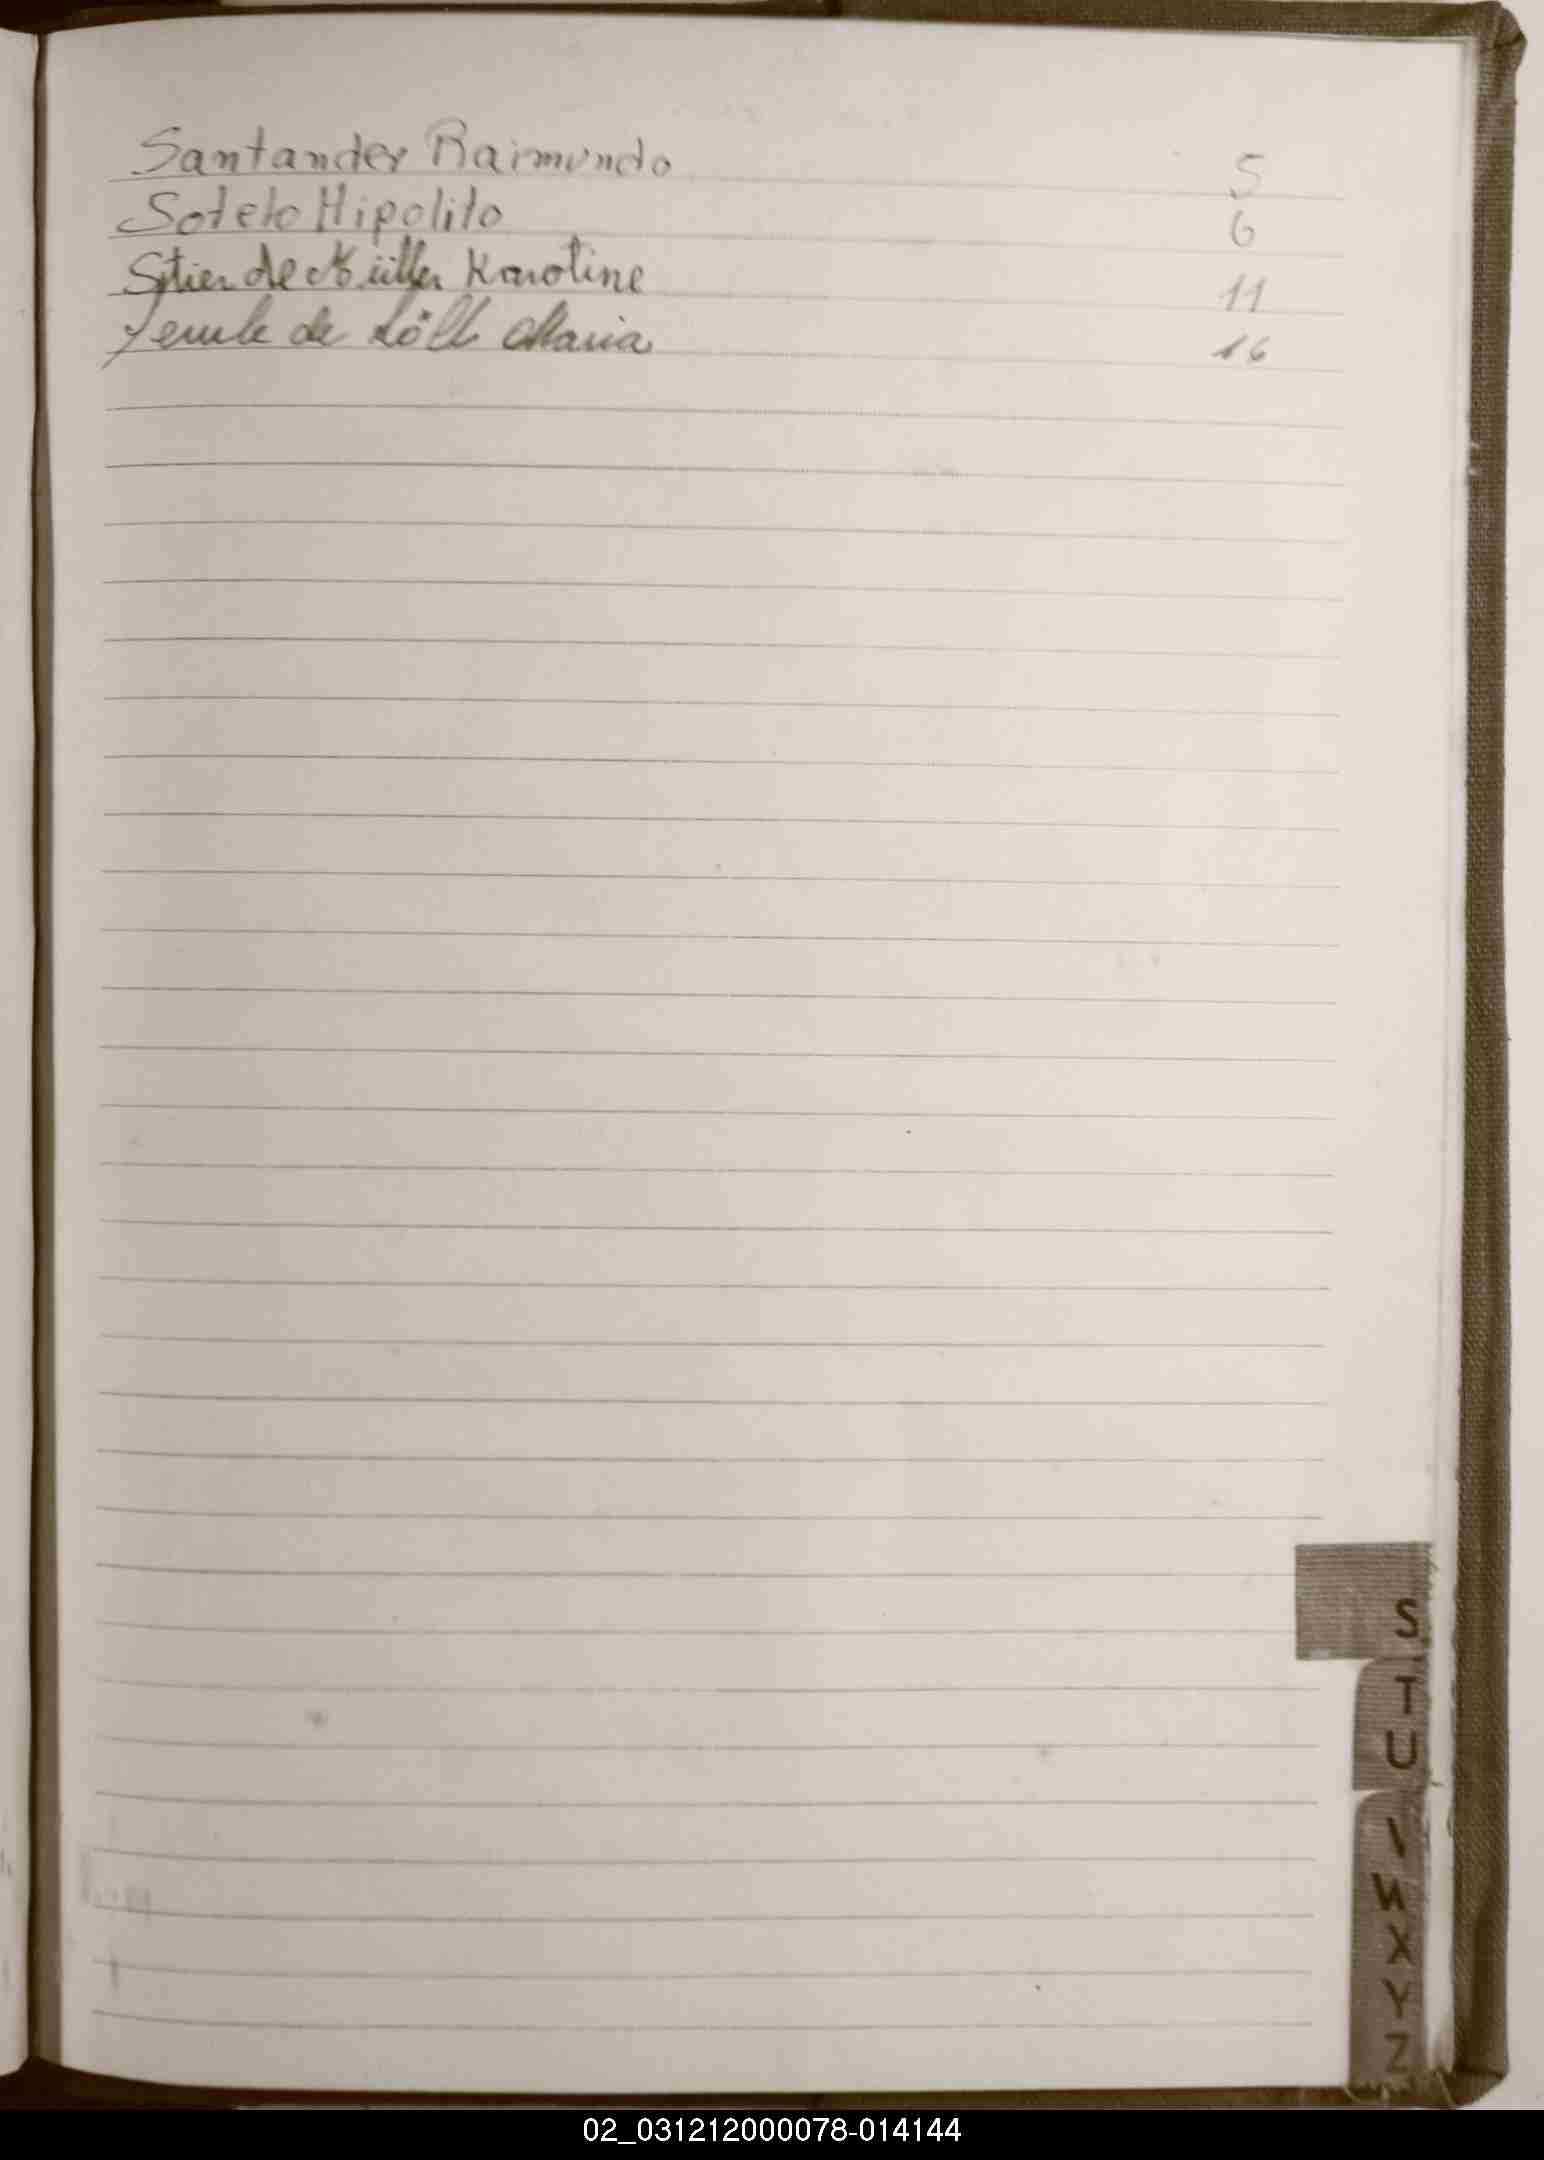 Santander Raimundo 5
Sotelo Hipolito 6
Stier de Müller Karoline 11
de Löll Maria 16
S
T
U
V
W
X
Y
Z
02_031212000078-014144